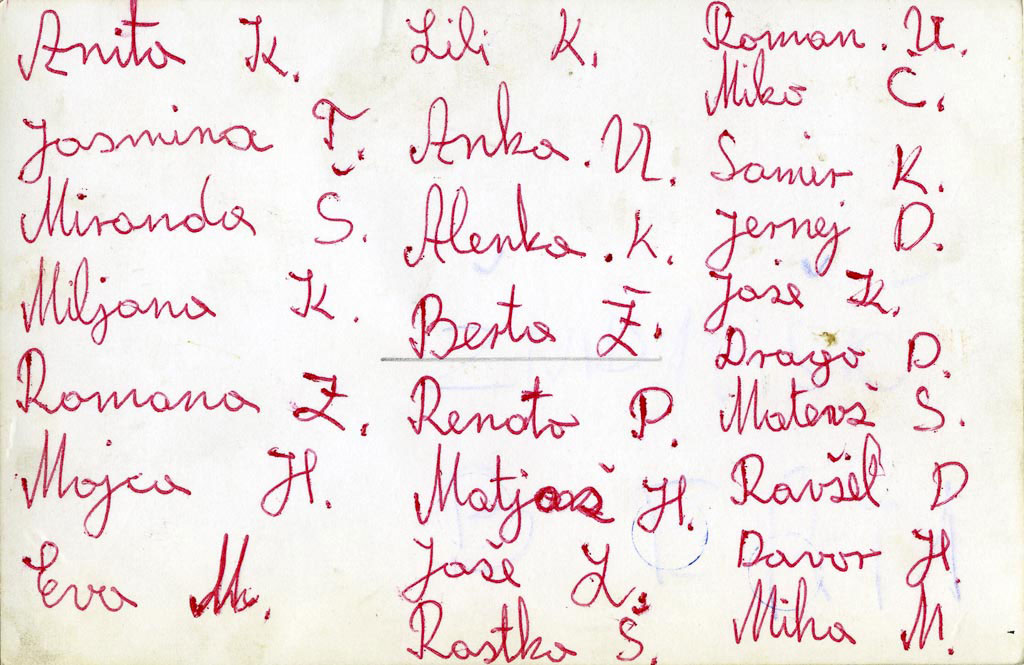 Anita K.
Jasmina T.
Miranda Š.
Miljana K.
Romana Z.
Mojca H.
Eva M.
Lili K.
Anka. U.
Alenka. K.
Berta Ž.
Renato P.
Matjaž H.
Jože Z.
Rastko Š.
Roman. U.
Miko Č.
Samir K.
Jernej D.
Jože K.
Drago D.
Matevž S.
Ravšel D
Davor H.
Miha M.